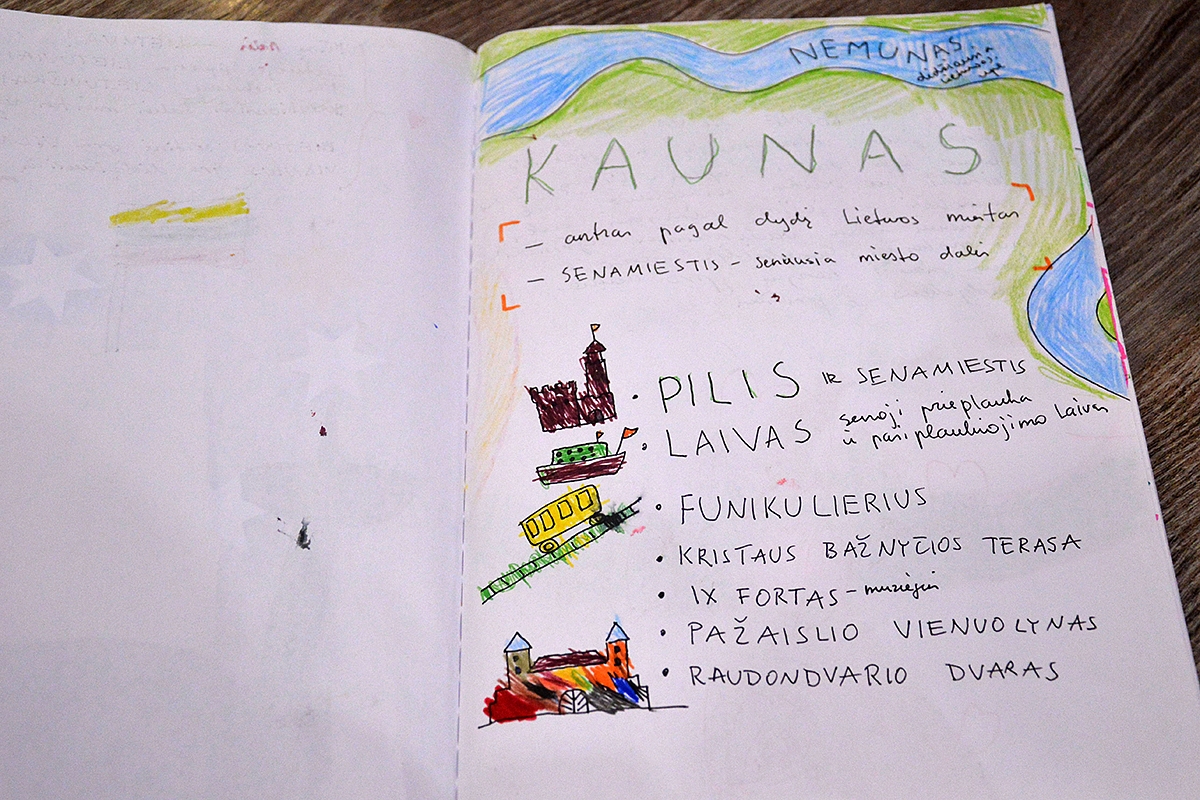 NEMUNAS
didžiausia
Lietuvos
upė
KAUNAS
– antras pagal dydį Lietuvos miestas
– SENAMIESTIS – seniausia miesto dalis
• PILIS IR SENAMIESTIS
• LAIVAS senoji prieplauka
ir pasiplaukiojimo laivas
• FUNIKULIERIUS
• KRISTAUS BAŽNYČIOS TERASA
• IX FORTAS – muziejus
• PAŽAISLIO VIENUOLYNAS
• RAUDONDVARIO DVARAS